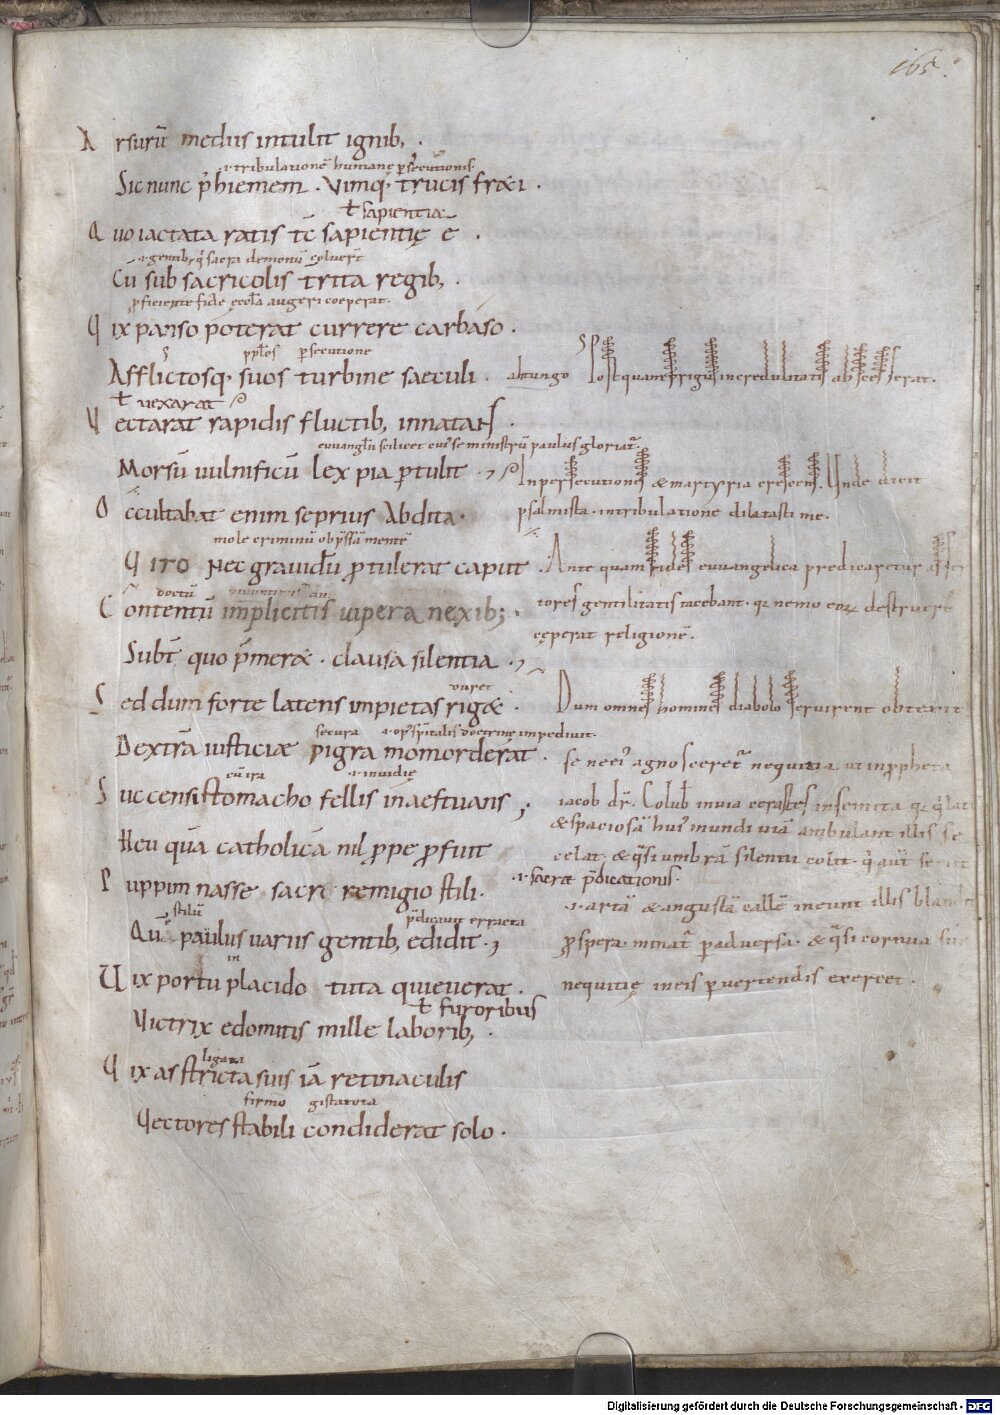 165.
Arsurū mediis intulit ignib; .
.i. tribulationē humanę p̄secutionis.
Sic nunc p̄ hiemem . Vimq; trucis freti .
ł sapientia
Quo iactata ratis tc̄ sapientię ē .
.i. gentib; q̄ sacra demonū colueřt
Cū sub sacricolis trita regib; .
proficiente fide ęccła augeri coeperat.
Vix panso poterat currere carbaso .
pplōs persecutione
Afflictosq; suos turbine saeculi .
abiungo Postquam frigus incredulitatis abscesserat.
ł vexarat
Vectarat rapidis fluctib; innatans .
euuangłii scilicet cuius se ministrū paulus gloriat̄.
Morsū uulnificū lex pia pertulit .
In persecutione & martyria crescens. Unde dicit
Occultabat enim se prius Abdita .
psalmista . in tribulatione dilatasti me.
mole criminū obp̄ssā mentē
Viro Nec grauidū protulerat caput .
Ante quam fides euuangelica predicaretur
doctū
Contentū implicitis uipera nexib; .
tores gentilitatis tacebant . q; nemo eoꝝ destruere
cęperat religionē.
Subt̄ quo p̄merae . clausa silentia .
uiret
Sed dum forte latens impietas rigae .
Dum omnes homines diabolo seruirent obtexit
secura .i. opus sp̄italis doctrinę impediuit.
Dextrā iusticiae pigra momorderat .
se nec; agnosceret̄ nequitia ut in propheta
cū ira .i. inuidię
Succensi stomacho fellis inaestuans ;
iacob dr̄. Colub̄ in uia cerastes in semita q;
& spaciosā huius mundi uiā ambulant illis se
Heu quā catholicā nil prope profuit
celat, & q̄si umbrā silentii colit .
.i. sacrae p̄dicationis.
Puppim nasse . sacri remigio stili .
.i. artā & angustā callē ineunt illis blanda
stilū p̄dicauit exracta
Quā paulus uariis gentib; edidit .
prospera . minat̄ per aduersa . & q̄si cornua suę
in
Vix portu placido tuta quieuerat .
nequitię in eis peruertendis exercet .
ł furoribus
Victrix edomitis mille laborib; .
ligari
Vix astricta suis iā retinaculis
firmo
Vectores stabili condiderat solo .
Digitalisierung gefördert durch die Deutsche Forschungsgemeinschaft - DFG